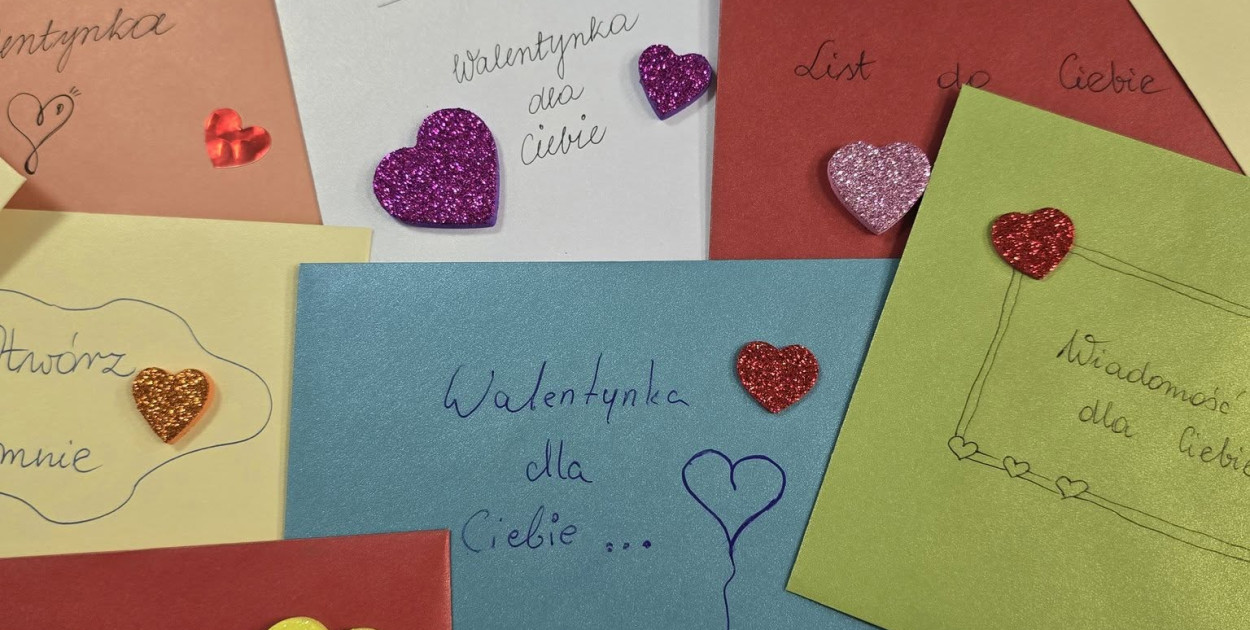 entynka
Walentynka
dla
Ciebie
List do Ciebie
twórz
mnie
Walentynka
dla
Ciebie ...
Wiadomość
dla Ciebie